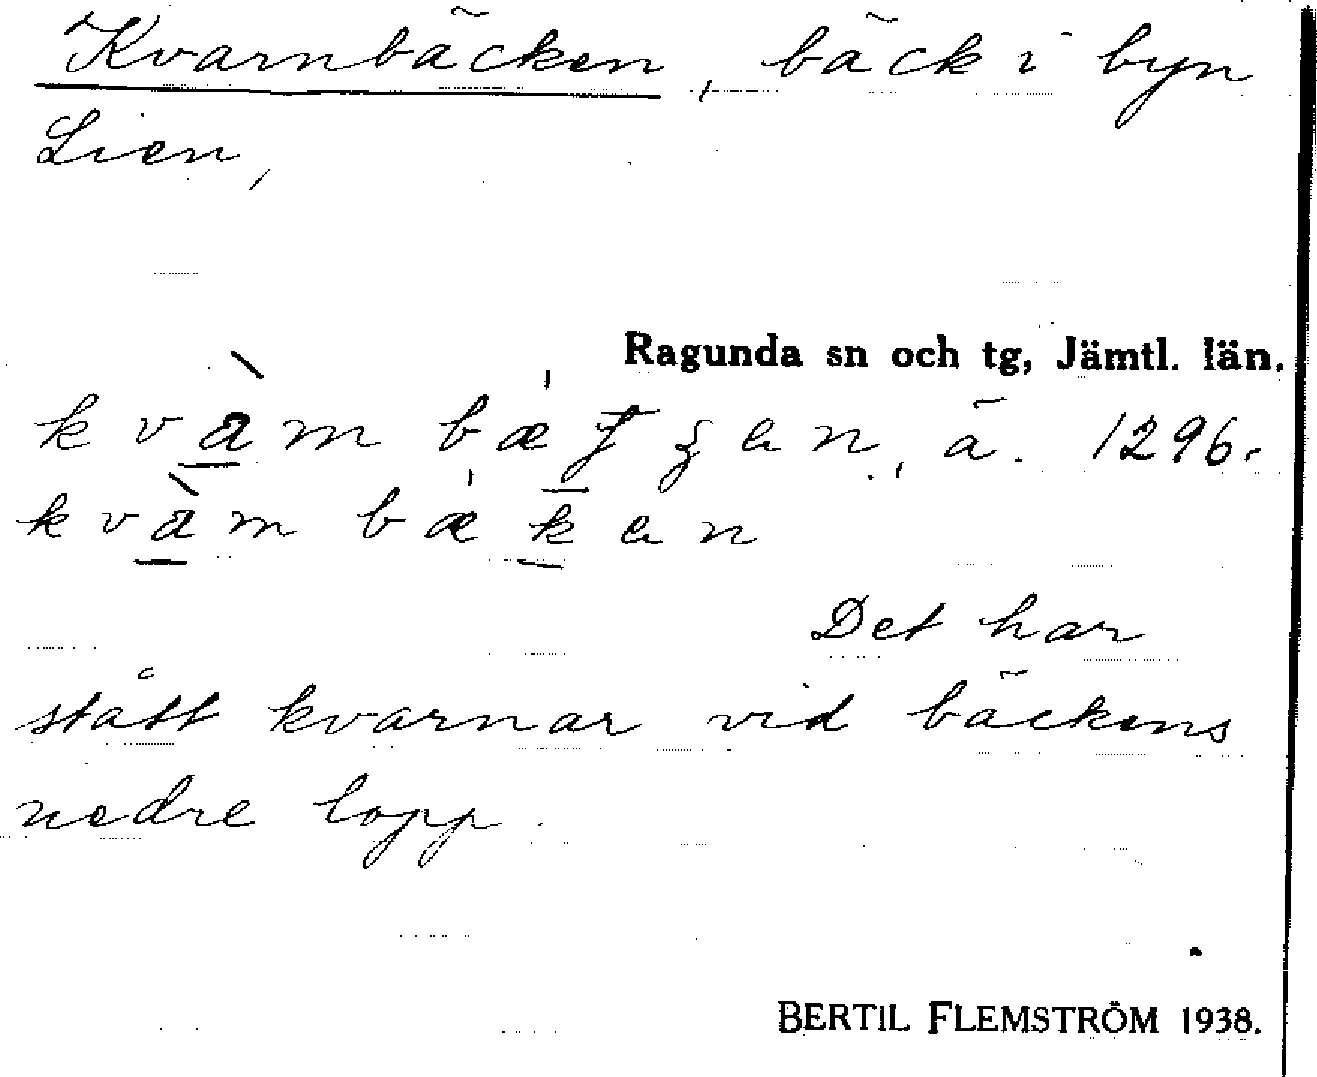 Kvarnbäcken, bäck i byn
Lien,
Ragunda sn och tg, Jämtl. län.
ä. 1296.
kvàm bækan
Det har
stått kvarnar vid bäckens
nedre lopp.
BERTIL FLEMSTRÖM 1938.